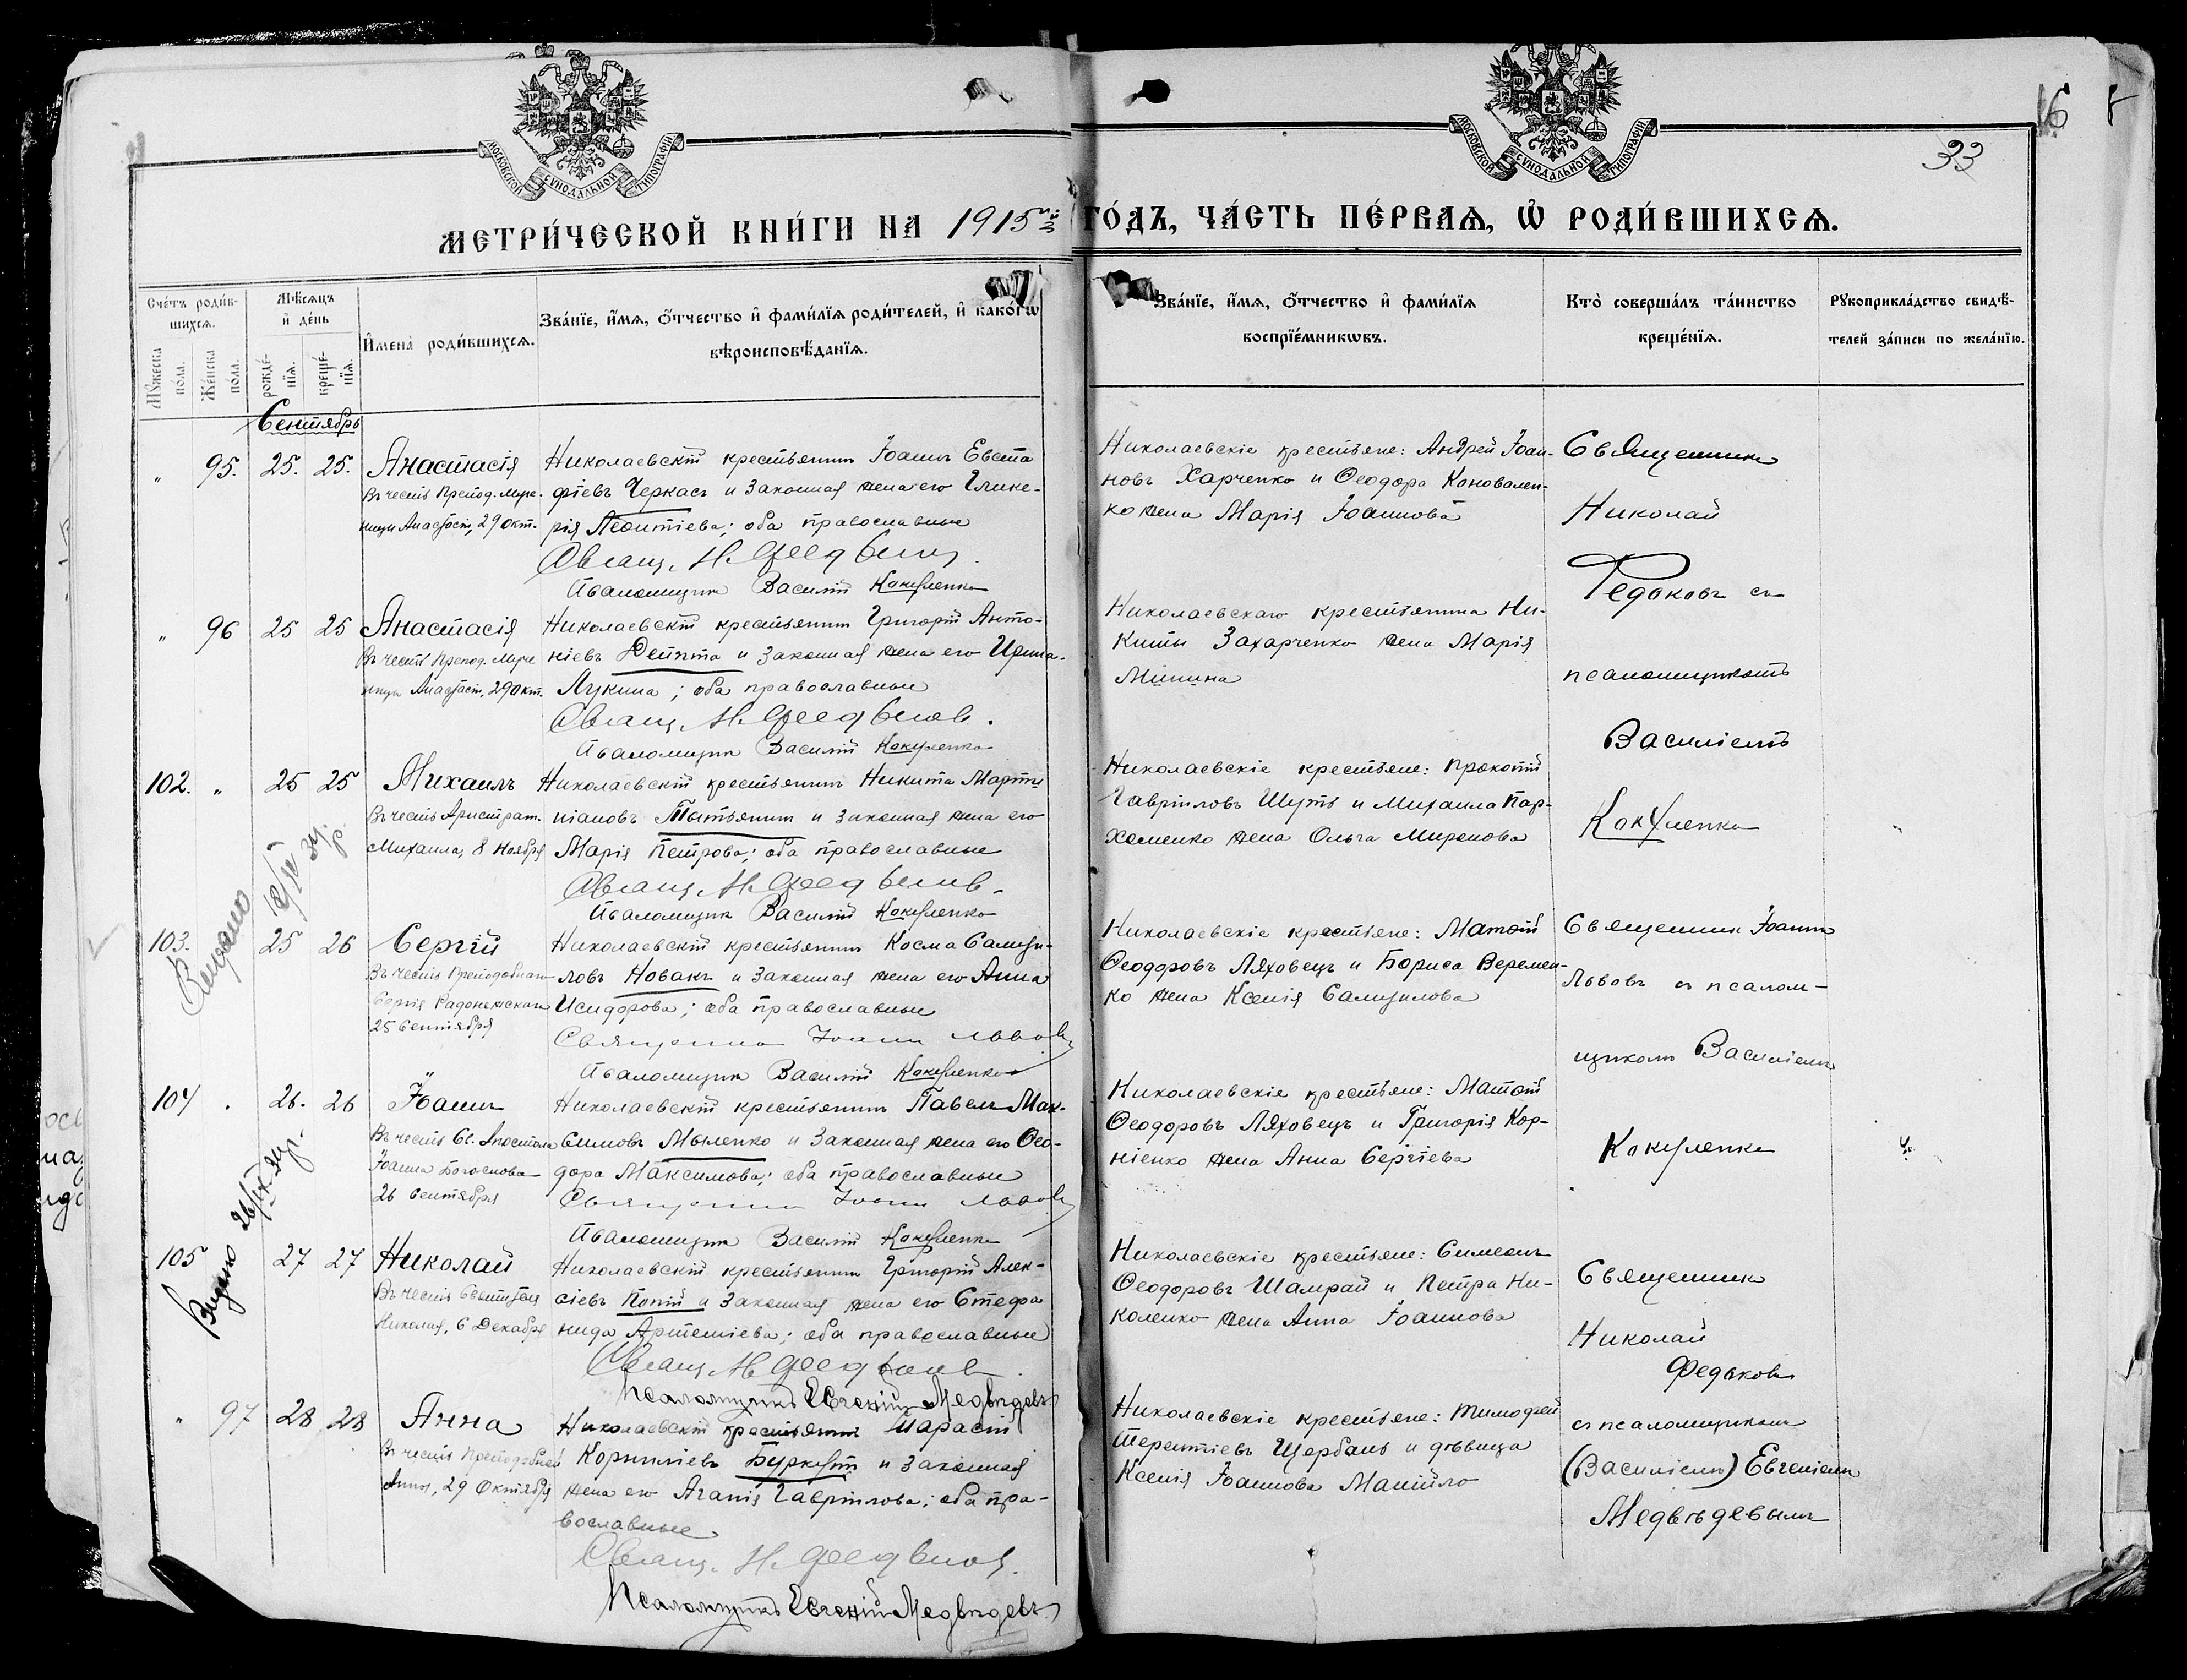 МОСКОВСКОЙ СѴНОДАЛЬНОЙ ТИПОГРАФІИ
МОСКОВСКОЙ СѴНОДАЛЬНОЙ ТИПОГРАФІИ
33
МЕТРИ́ЧЕСКОЙ КНИ́ГИ НА 1915й ГО́ДЪ, ЧА́СТЬ ПЕ́РВАѦ, Ѡ҆ РОДИ́ВШИХСѦ.
Сче́тъ роди́в-
шихсѧ.
Мꙋжеска по́ла.
Же́нска по́ла.
Мѣ́сѧцъ
и҆ де́нь
рожде́-
нїѧ.
креще́-
нїѧ.
И҆мена̀ роди́вшихсѧ.
Зва́нїе, и҆́мѧ, ѻ҆́тчество и҆ фами́лїѧ роди́телей, и҆ како́гѡ
вѣроисповѣ́данїѧ.
Зва́нїе, и҆́мѧ, ѻ҆́тчество и҆ фами́лїѧ
воспрїе́мникѡвъ.
Кто̀ соверша́лъ та́инство
креще́нїѧ.
Рꙋкоприкла́дство свидѣ́-
телей за́писи по жела́нїю.
Сентябрь
" 95. 25. 25. Анастасія
Въ честь Препод. Муче-
ницы Анастасіи, 29 Окт.
Николаевскій крестьянинъ Іоаннъ Евста
фіевъ Черкасъ и законная жена его Глике-
рія Леонтіева; оба православные
Священ. Н. Федьковъ.
Псаломщикъ Василій Кокуленко
Николаевскіе крестьяне: Андрей Іоан-
новъ Харченко и Ѳеодора Коновален-
ко жена Марія Іоаннова
Священникъ
Николай
Федоковъ съ
псаломщикомъ
Василіемъ
Кокуленко
" 96 25 25 Анастасія
Въ честь Препод. Муче
ницы Анастасіи, 29 Окт.
Николаевскій крестьянинъ Григорій Анто-
ніевъ Дейнта и законная жена его Ирина
Лукина; оба православные
Священ. Н. Федьковъ.
Псаломщикъ Василій Кокуленко
Николаевскаго крестьянина Ни-
киты Захарченко жена Марія
Минина
102. " 25 25 Михаилъ
Въ честь Архистрат.
Михаила, 8 Ноября
Николаевскій крестьянинъ Никита Марти
ніановъ Татьянинъ и законная жена его
Марія Петрова; оба православные
Священ. Н. Федьковъ.
Псаломщикъ Василій Кокуленко
Николаевскіе крестьяне: Прокопій
Гавріиловъ Шуть и Михаила Пар-
хоменко жена Ольга Миронова
103. 25 26 Сергій
Въ честь Преподобнаго
Сергія Радонежскаго
25 Сентября
Николаевскій крестьянинъ Косма Самуи-
ловъ Новакъ и законная жена его Анна
Исидорова; оба православные
Священникъ Іоаннъ Львовъ
Псаломщикъ Василій Кокуленко
Николаевскіе крестьяне: Матѳій
Ѳеодоровъ Ляховецъ и Бориса Веремен-
ко жена Ксенія Самуилова
Священникъ Іоаннъ
Львовъ съ псалом-
щикомъ Василіемъ
Кокуленко
104 . 26. 26 Іоаннъ
Въ честь Св. Апостола
Іоанна Богослова
26 Сентября
Николаевскій крестьянинъ Павелъ Мак-
симовъ Мыленко и законная жена его Ѳео-
дора Максимова; оба православные
Священникъ Іоаннъ Львовъ
Псаломщикъ Василій Кокуленко
Николаевскіе крестьяне: Матѳій
Ѳеодоровъ Ляховецъ и Григорія Кор-
ніенко жена Анна Сергіева
105 27 27 Николай
Въ честь Святителя
Николая, 6 Декабря
Николаевскій крестьянинъ Григорій Алек-
сіевъ Попій и законная жена его Стефа
нида Артеміева; оба православные
Священ. Н. Федьковъ
Псаломщикъ Евгеній Медвѣдевъ
Николаевскіе крестьяне: Симеонъ
Ѳеодоровъ Шамрай и Петра Ни-
коленко жена Анна Іоаннова
Священникъ
Николай
Федьковъ
съ псаломщикомъ
(Василіемъ) Евгеніемъ
Медвѣдевымъ
" 97 28 28 Анна
Въ честь Преподобной
Анны, 29 Октября
Николаевскій крестьянинъ Тарасій
Корниліевъ Буркутъ и законная
жена его Агапія Гавріилова; оба пра-
вославные
Священ. Н. Федьковъ.
Псаломщикъ Евгеній Медвѣдевъ
Николаевскіе крестьяне: Тимофей
Терентіевъ Щербань и дѣвица
Ксенія Іоаннова Манійло
Видано
Видано 26/IX